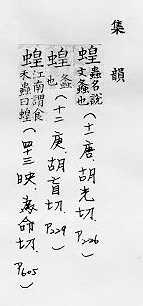 集韻
蝗 蟲名說文螽也(十一唐、胡光切、P.226)
蝗 螽也(十二庚、胡盲切、P.229)
蝗 江南謂食禾蟲曰蝗(四十三映、爲命切、P.605)